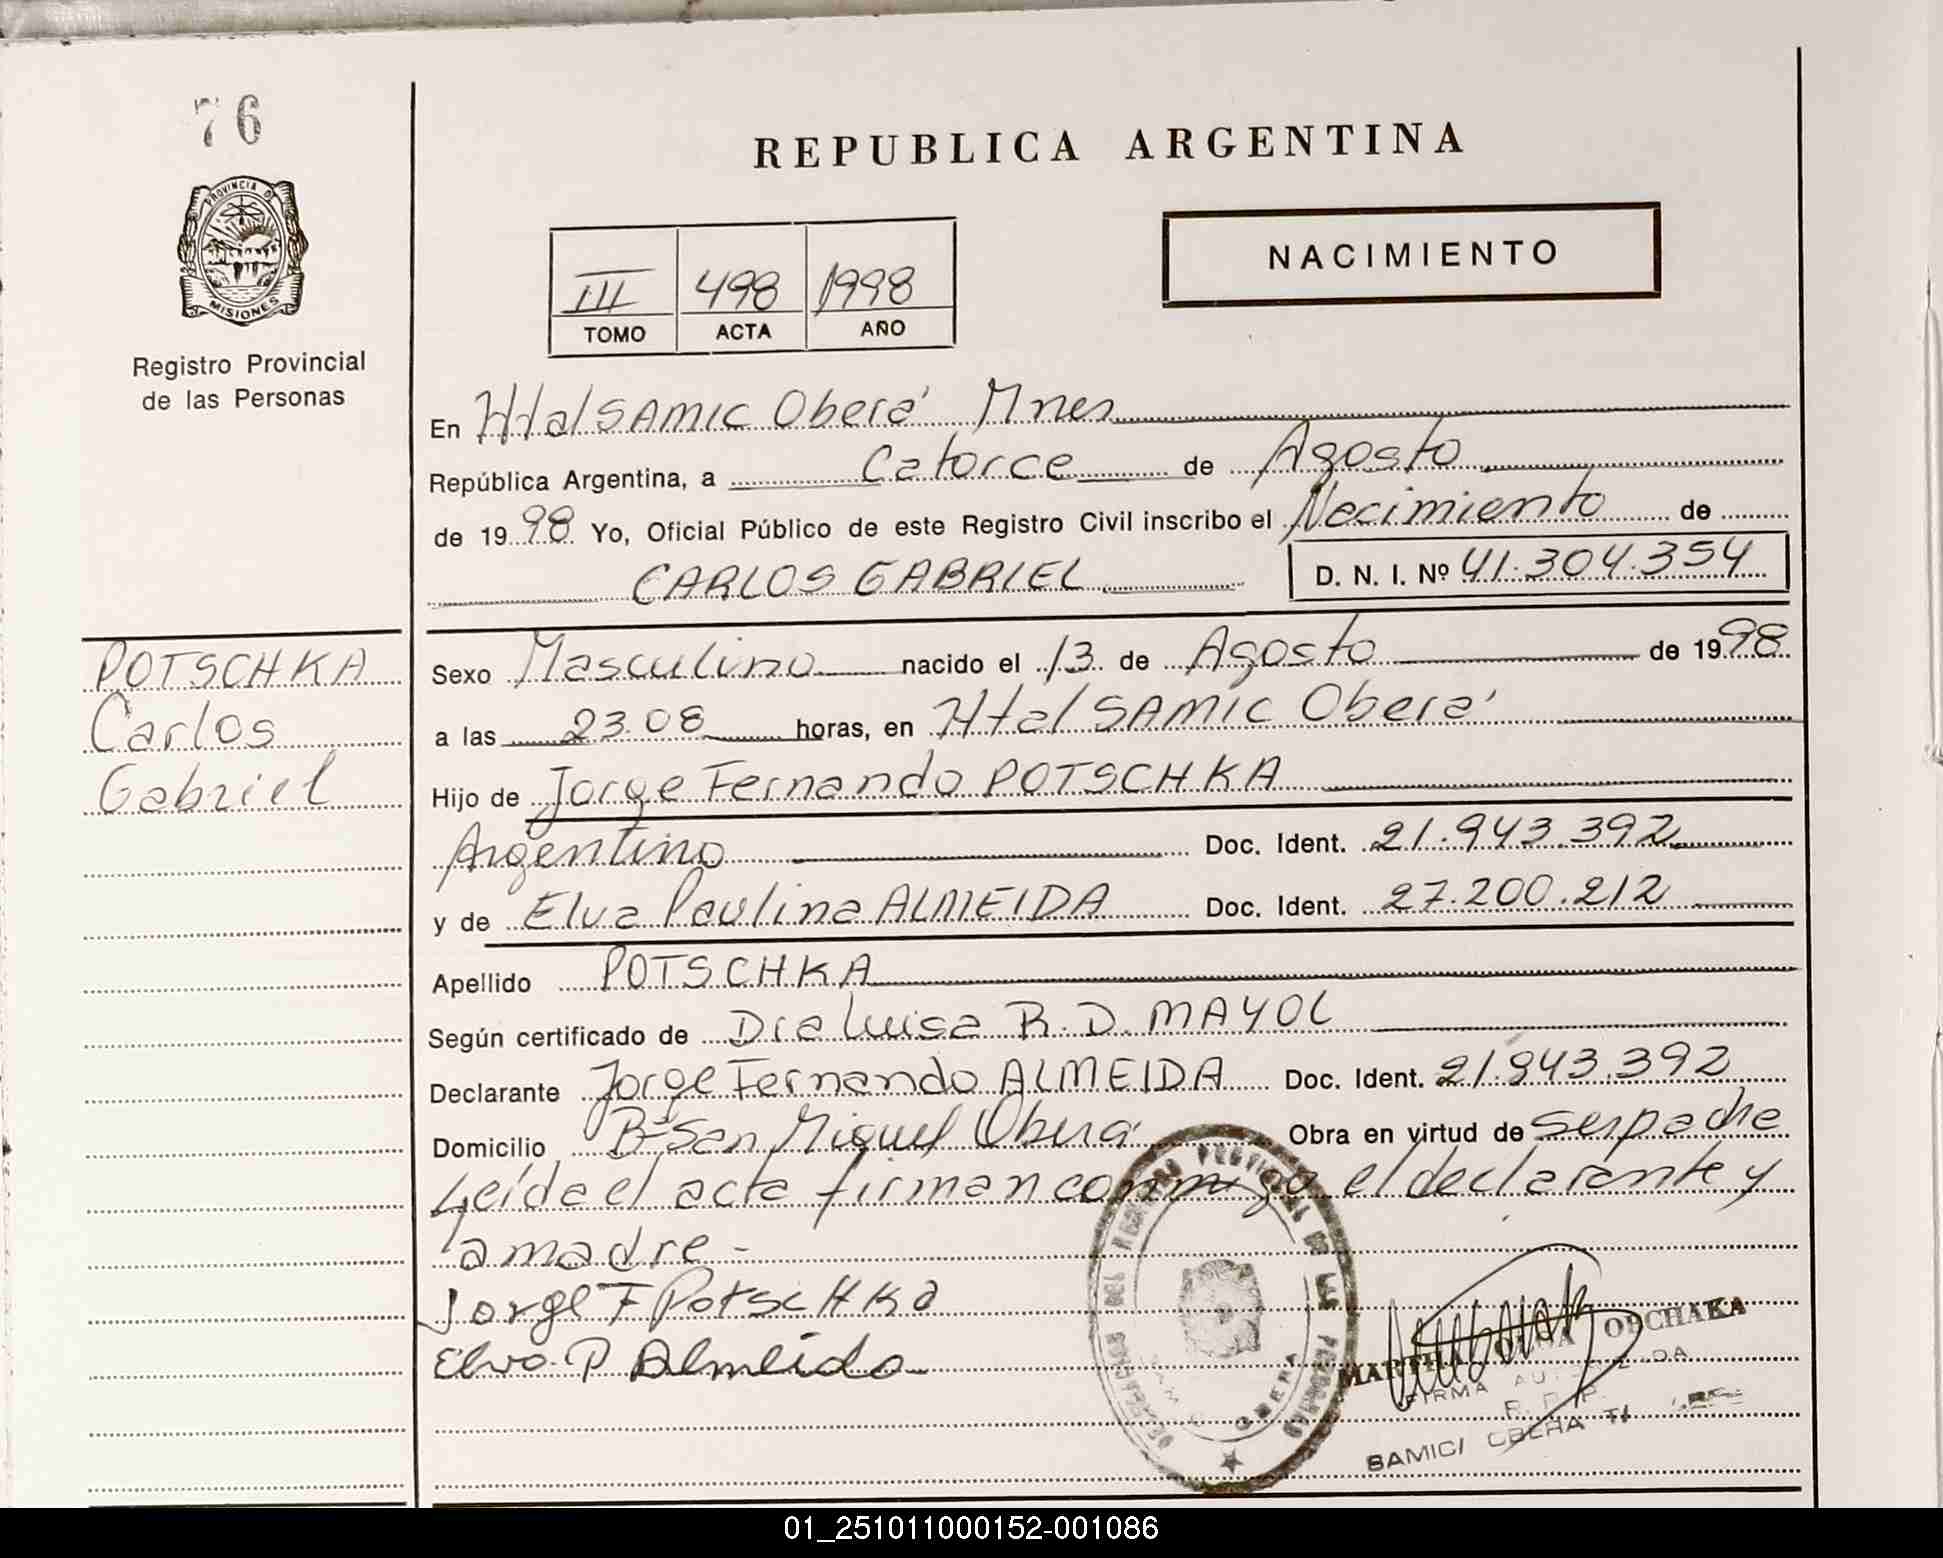 76
REPUBLICA ARGENTINA
PROVINCIA DE
MISIONES
NACIMIENTO
III 498 1998
TOMO ACTA AÑO
Registro Provincial
de las Personas
En Htal SAMIC Oberá Mnes
República Argentina, a Catorce de Agosto
de 1998 Yo, Oficial Público de este Registro Civil inscribo el Nacimiento de
CARLOS GABRIEL D. N. I. Nº 41.304.354
POTSCHKA
Carlos
Gabriel
Sexo Masculino nacido el 13 de Agosto de 1998
a las 23.08 horas, en Htal SAMIC Oberá
Hijo de Jorge Fernando POTSCHKA
Argentino Doc. Ident. 21.943.392
y de Elva Paulina ALMEIDA Doc. Ident. 27.200.212
Apellido POTSCHKA
Según certificado de Dra Luisa R. D. MAYOL
Declarante Jorge Fernando ALMEIDA Doc. Ident. 21.943.392
Domicilio Bº San Miguel Oberá Obra en virtud de ser padre
Leída el acta firman conmigo el declarante y
la madre -
Jorge F Potschka
Elva P Almeida
MARTHA OLGA OBCHAKA
FIRMA
R. P. P.
SAMIC OBERA
OBERA
01_251011000152-001086